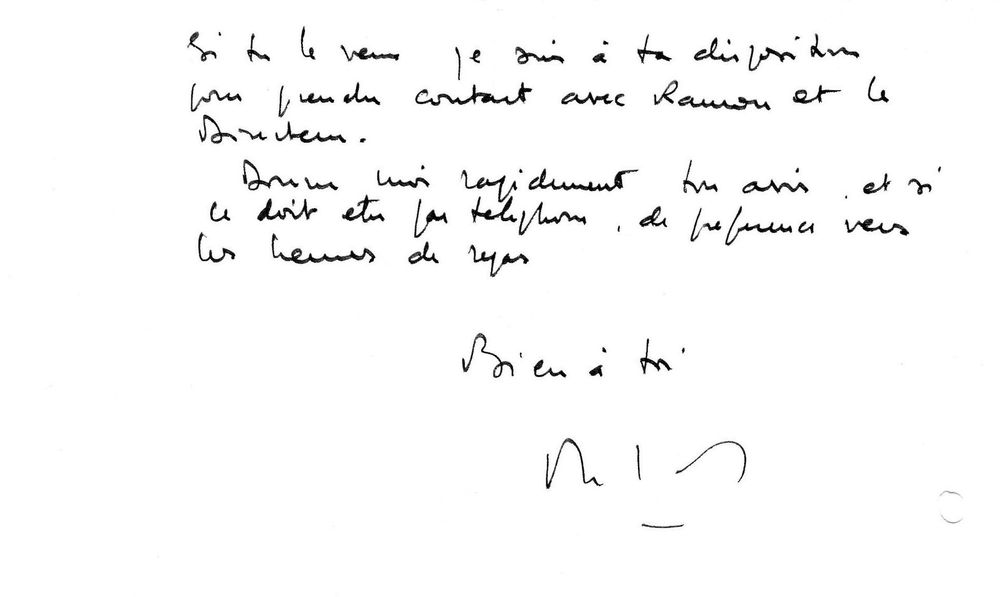 Si tu le veux je suis à ta disposition
pour prendre contact avec Ramon et le
Directeur.
Donne moi rapidement ton avis, et si
ce doit etre par telephone, de preference vers
les heures de repas
Bien à toi